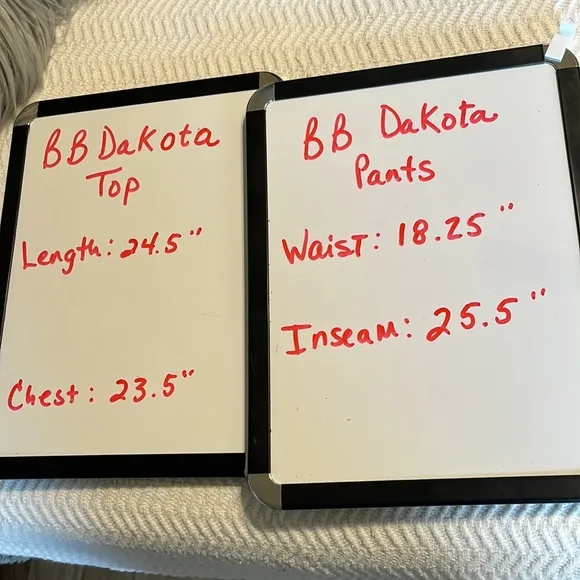 BB Dakota
Top
Length: 24.5"
Chest: 23.5"
BB Dakota
Pants
Waist: 18.25"
Inseam: 25.5"